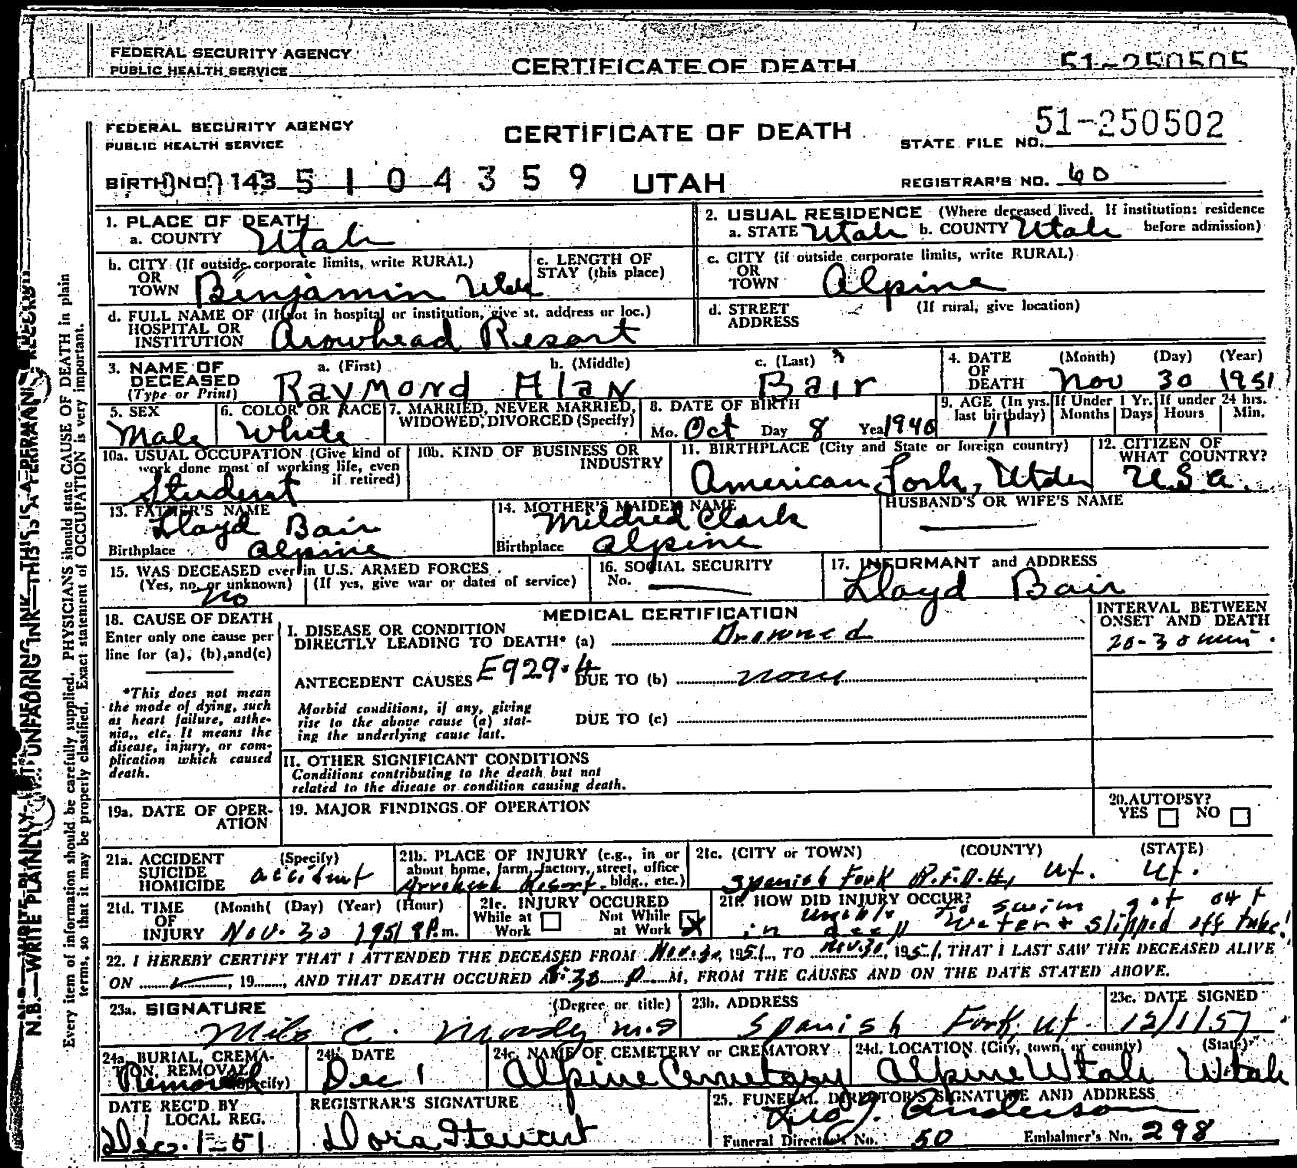 FEDERAL SECURITY AGENCY
PUBLIC HEALTH SERVICE CERTIFICATE OF DEATH 51-250505
FEDERAL SECURITY AGENCY
PUBLIC HEALTH SERVICE CERTIFICATE OF DEATH STATE FILE NO. 51-250502
BIRTH NO. 143 5 1 0 4 3 5 9 UTAH REGISTRAR'S NO. 60
1. PLACE OF DEATH
a. COUNTY Utah
2. USUAL RESIDENCE (Where deceased lived. If institution: residence before admission)
a. STATE Utah b. COUNTY Utah
b. CITY (If outside corporate limits, write RURAL) OR TOWN Benjamin Utah
c. LENGTH OF STAY (this place)
c. CITY (if outside corporate limits, write RURAL) OR TOWN Alpine
d. FULL NAME OF (If not in hospital or institution, give st. address or loc.) HOSPITAL OR INSTITUTION Arowhead Resort
d. STREET ADDRESS (If rural, give location)
3. NAME OF DECEASED (Type or Print)
a. (First) b. (Middle) c. (Last)
Raymond Alan Bair
4. DATE OF DEATH (Month) (Day) (Year)
Nov 30 1951
5. SEX Male
6. COLOR OR RACE White
7. MARRIED, NEVER MARRIED, WIDOWED, DIVORCED (Specify)
8. DATE OF BIRTH
Mo. Oct Day 8 Year 1940
9. AGE (In yrs. last birthday) 11
If Under 1 Yr. Months Days
If under 24 hrs. Hours Min.
10a. USUAL OCCUPATION (Give kind of work done most of working life, even if retired) Student
10b. KIND OF BUSINESS OR INDUSTRY
11. BIRTHPLACE (City and State or foreign country)
American Fork, Utah
12. CITIZEN OF WHAT COUNTRY?
U.S.A.
13. FATHER'S NAME
Lloyd Bair
Birthplace Alpine
14. MOTHER'S MAIDEN NAME
Mildred Clark
Birthplace Alpine
HUSBAND'S OR WIFE'S NAME
15. WAS DECEASED ever in U.S. ARMED FORCES
(Yes, no, or unknown) (If yes, give war or dates of service)
No
16. SOCIAL SECURITY No.
17. INFORMANT and ADDRESS
Lloyd Bair
MEDICAL CERTIFICATION
18. CAUSE OF DEATH
Enter only one cause per line for (a), (b), and (c)
*This does not mean the mode of dying, such as heart failure, asthenia, etc. It means the disease, injury, or complication which caused death.
I. DISEASE OR CONDITION DIRECTLY LEADING TO DEATH* (a) Drowned
INTERVAL BETWEEN ONSET AND DEATH
20-30 min.
ANTECEDENT CAUSES E929.4 DUE TO (b) none
Morbid conditions, if any, giving rise to the above cause (a) stating the underlying cause last.
DUE TO (c)
II. OTHER SIGNIFICANT CONDITIONS
Conditions contributing to the death but not related to the disease or condition causing death.
19a. DATE OF OPERATION
19. MAJOR FINDINGS OF OPERATION
20. AUTOPSY?
YES NO
21a. ACCIDENT SUICIDE HOMICIDE (Specify) accident
21b. PLACE OF INJURY (e.g., in or about home, farm, factory, street, office bldg., etc.)
Arrohead Resort
21c. (CITY or TOWN) (COUNTY) (STATE)
Spanish Fork R.F.D.#1, Ut. Ut.
21d. TIME OF INJURY (Month) (Day) (Year) (Hour)
Nov. 30 1951 8 P.m.
21e. INJURY OCCURED
While at Work Not While at Work X
21f. HOW DID INJURY OCCUR?
unable to swim got out
in deep water & slipped off tube.
22. I HEREBY CERTIFY THAT I ATTENDED THE DECEASED FROM Nov. 30, 1951, TO Nov. 30, 1951, THAT I LAST SAW THE DECEASED ALIVE
ON , 19 , AND THAT DEATH OCCURED AT 8:30 P M., FROM THE CAUSES AND ON THE DATE STATED ABOVE.
23a. SIGNATURE (Degree or title)
Milo C. Moody M.D
23b. ADDRESS
Spanish Fork, Ut.
23c. DATE SIGNED
12/1/51
24a. BURIAL, CREMATION, REMOVAL (Specify)
Removal
24b. DATE
Dec 1
24c. NAME OF CEMETERY or CREMATORY
Alpine Cemetary
24d. LOCATION (City, town, or county) (State)
Alpine Utah Utah
DATE REC'D BY LOCAL REG.
Dec. 1-51
REGISTRAR'S SIGNATURE
Dora Stewart
25. FUNERAL DIRECTOR'S SIGNATURE AND ADDRESS
Anderson
Funeral Director's No. 50 Embalmer's No. 298
N.B.—WRITE PLAINLY WITH UNFADING INK—THIS IS A PERMANENT RECORD
Every item of information should be carefully supplied. PHYSICIANS should state CAUSE OF DEATH in plain
terms, so that it may be properly classified. Exact statement of OCCUPATION is very important.